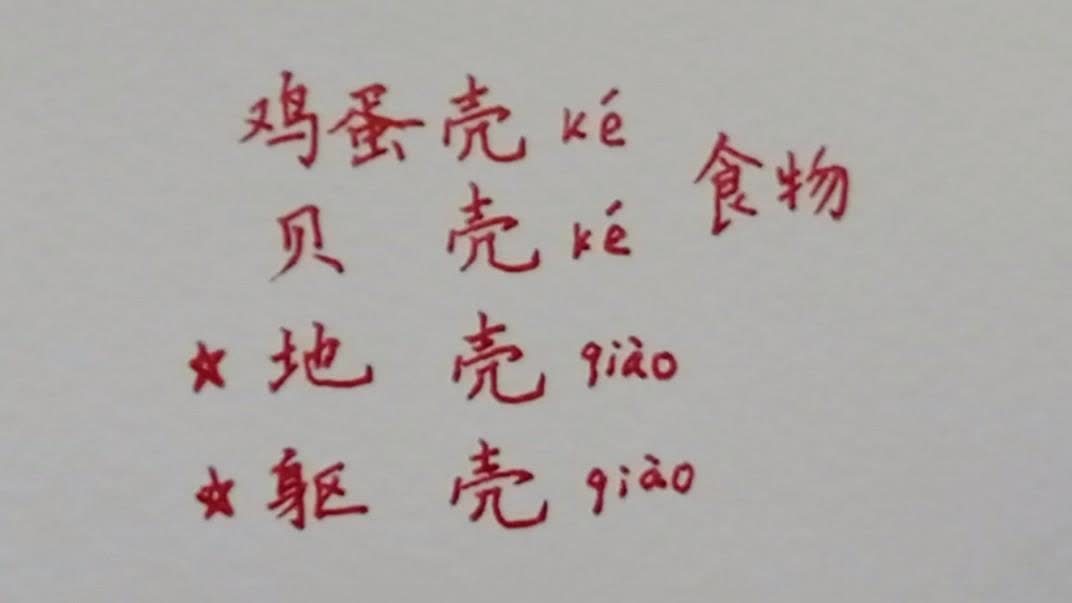 鸡蛋壳 ké
食物
贝 壳 ké
★ 地 壳 qiào
★ 躯 壳 qiào